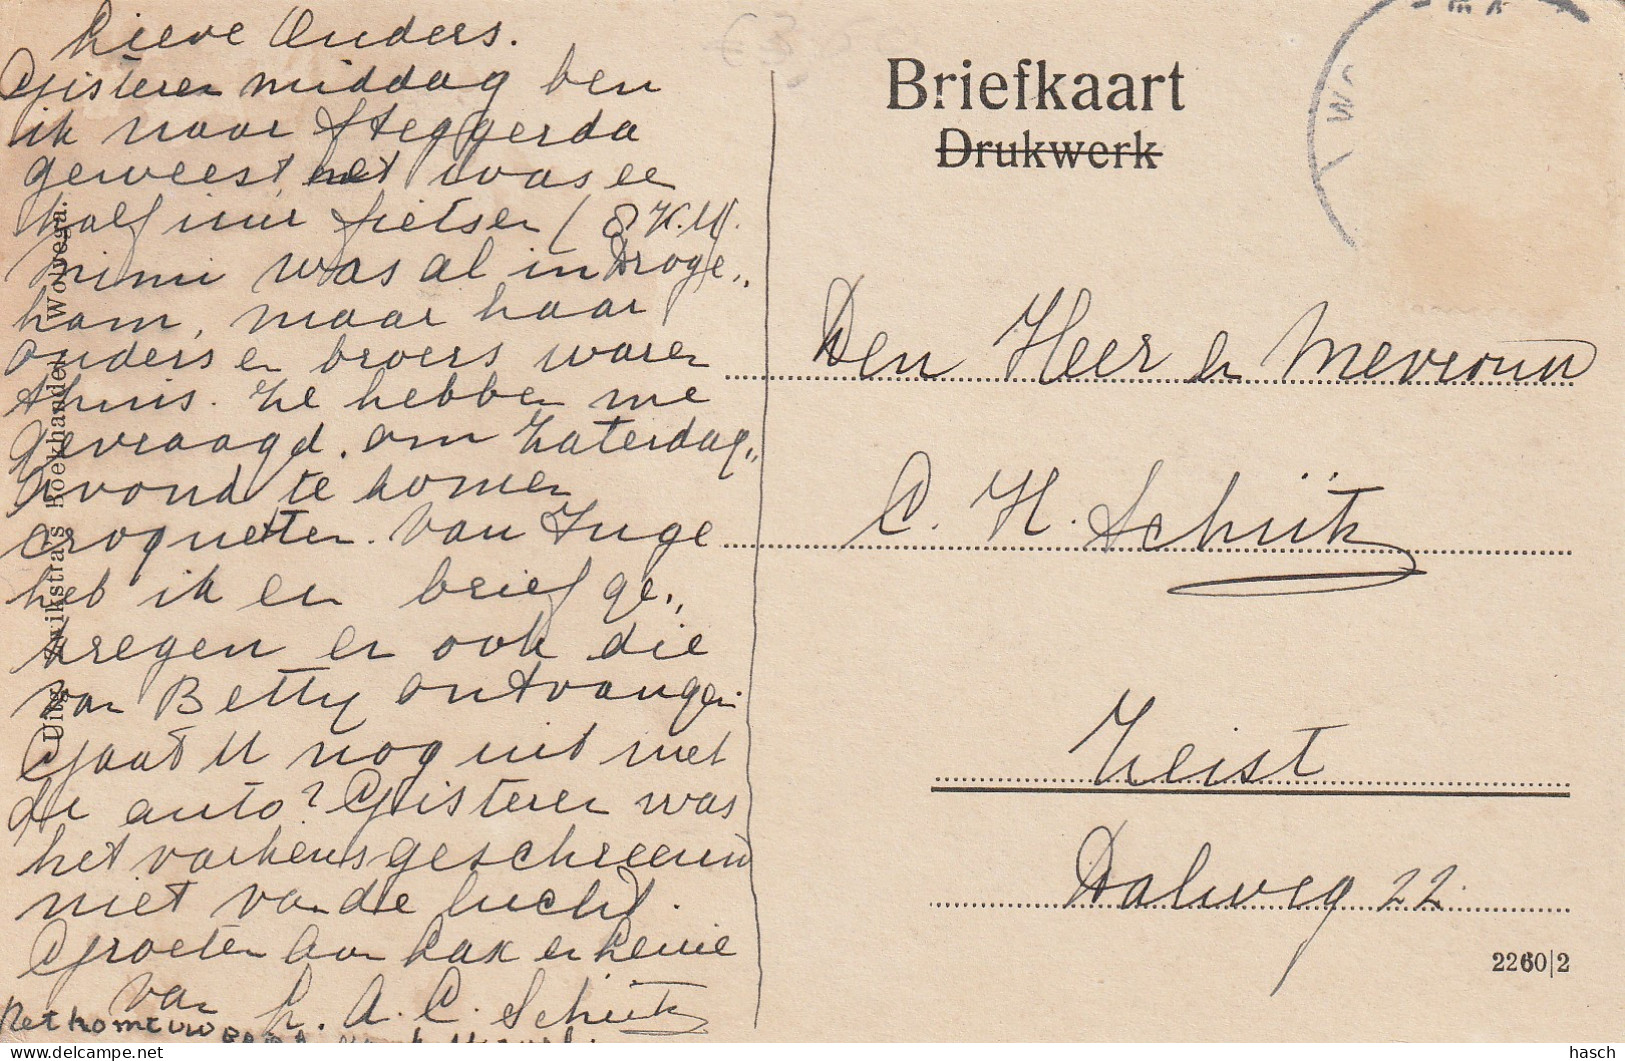 Lieve Ouders.
Gisteren middag ben
ik naar Steggerda
geweest, het was en
half uur fietsen (8 K.M.
Mimi was al in Droge„
ham, maar haar
ouders en broers waren
thuis. Ze hebben me
gevraagd. om Zaterdag„
avond te komen
croquetten. Van Inge
heb ik en brief ge„
kregen en ook die
van Betty ontvangen.
Gaat U nog uit met
de auto? Gisteren was
het varkensgeschreeuw
niet van de lucht.
Groeten aan Lax en Lenie
van
L. A. C. Schük
Het komt uw
Uitg. Zwikstra's Boekhandel Wolvega.
Briefkaart
Drukwerk
Den Heer en Mevrouw
C. H. Schük
Zeist
Dalweg 22.
2260|2
hasch
delcampe.net